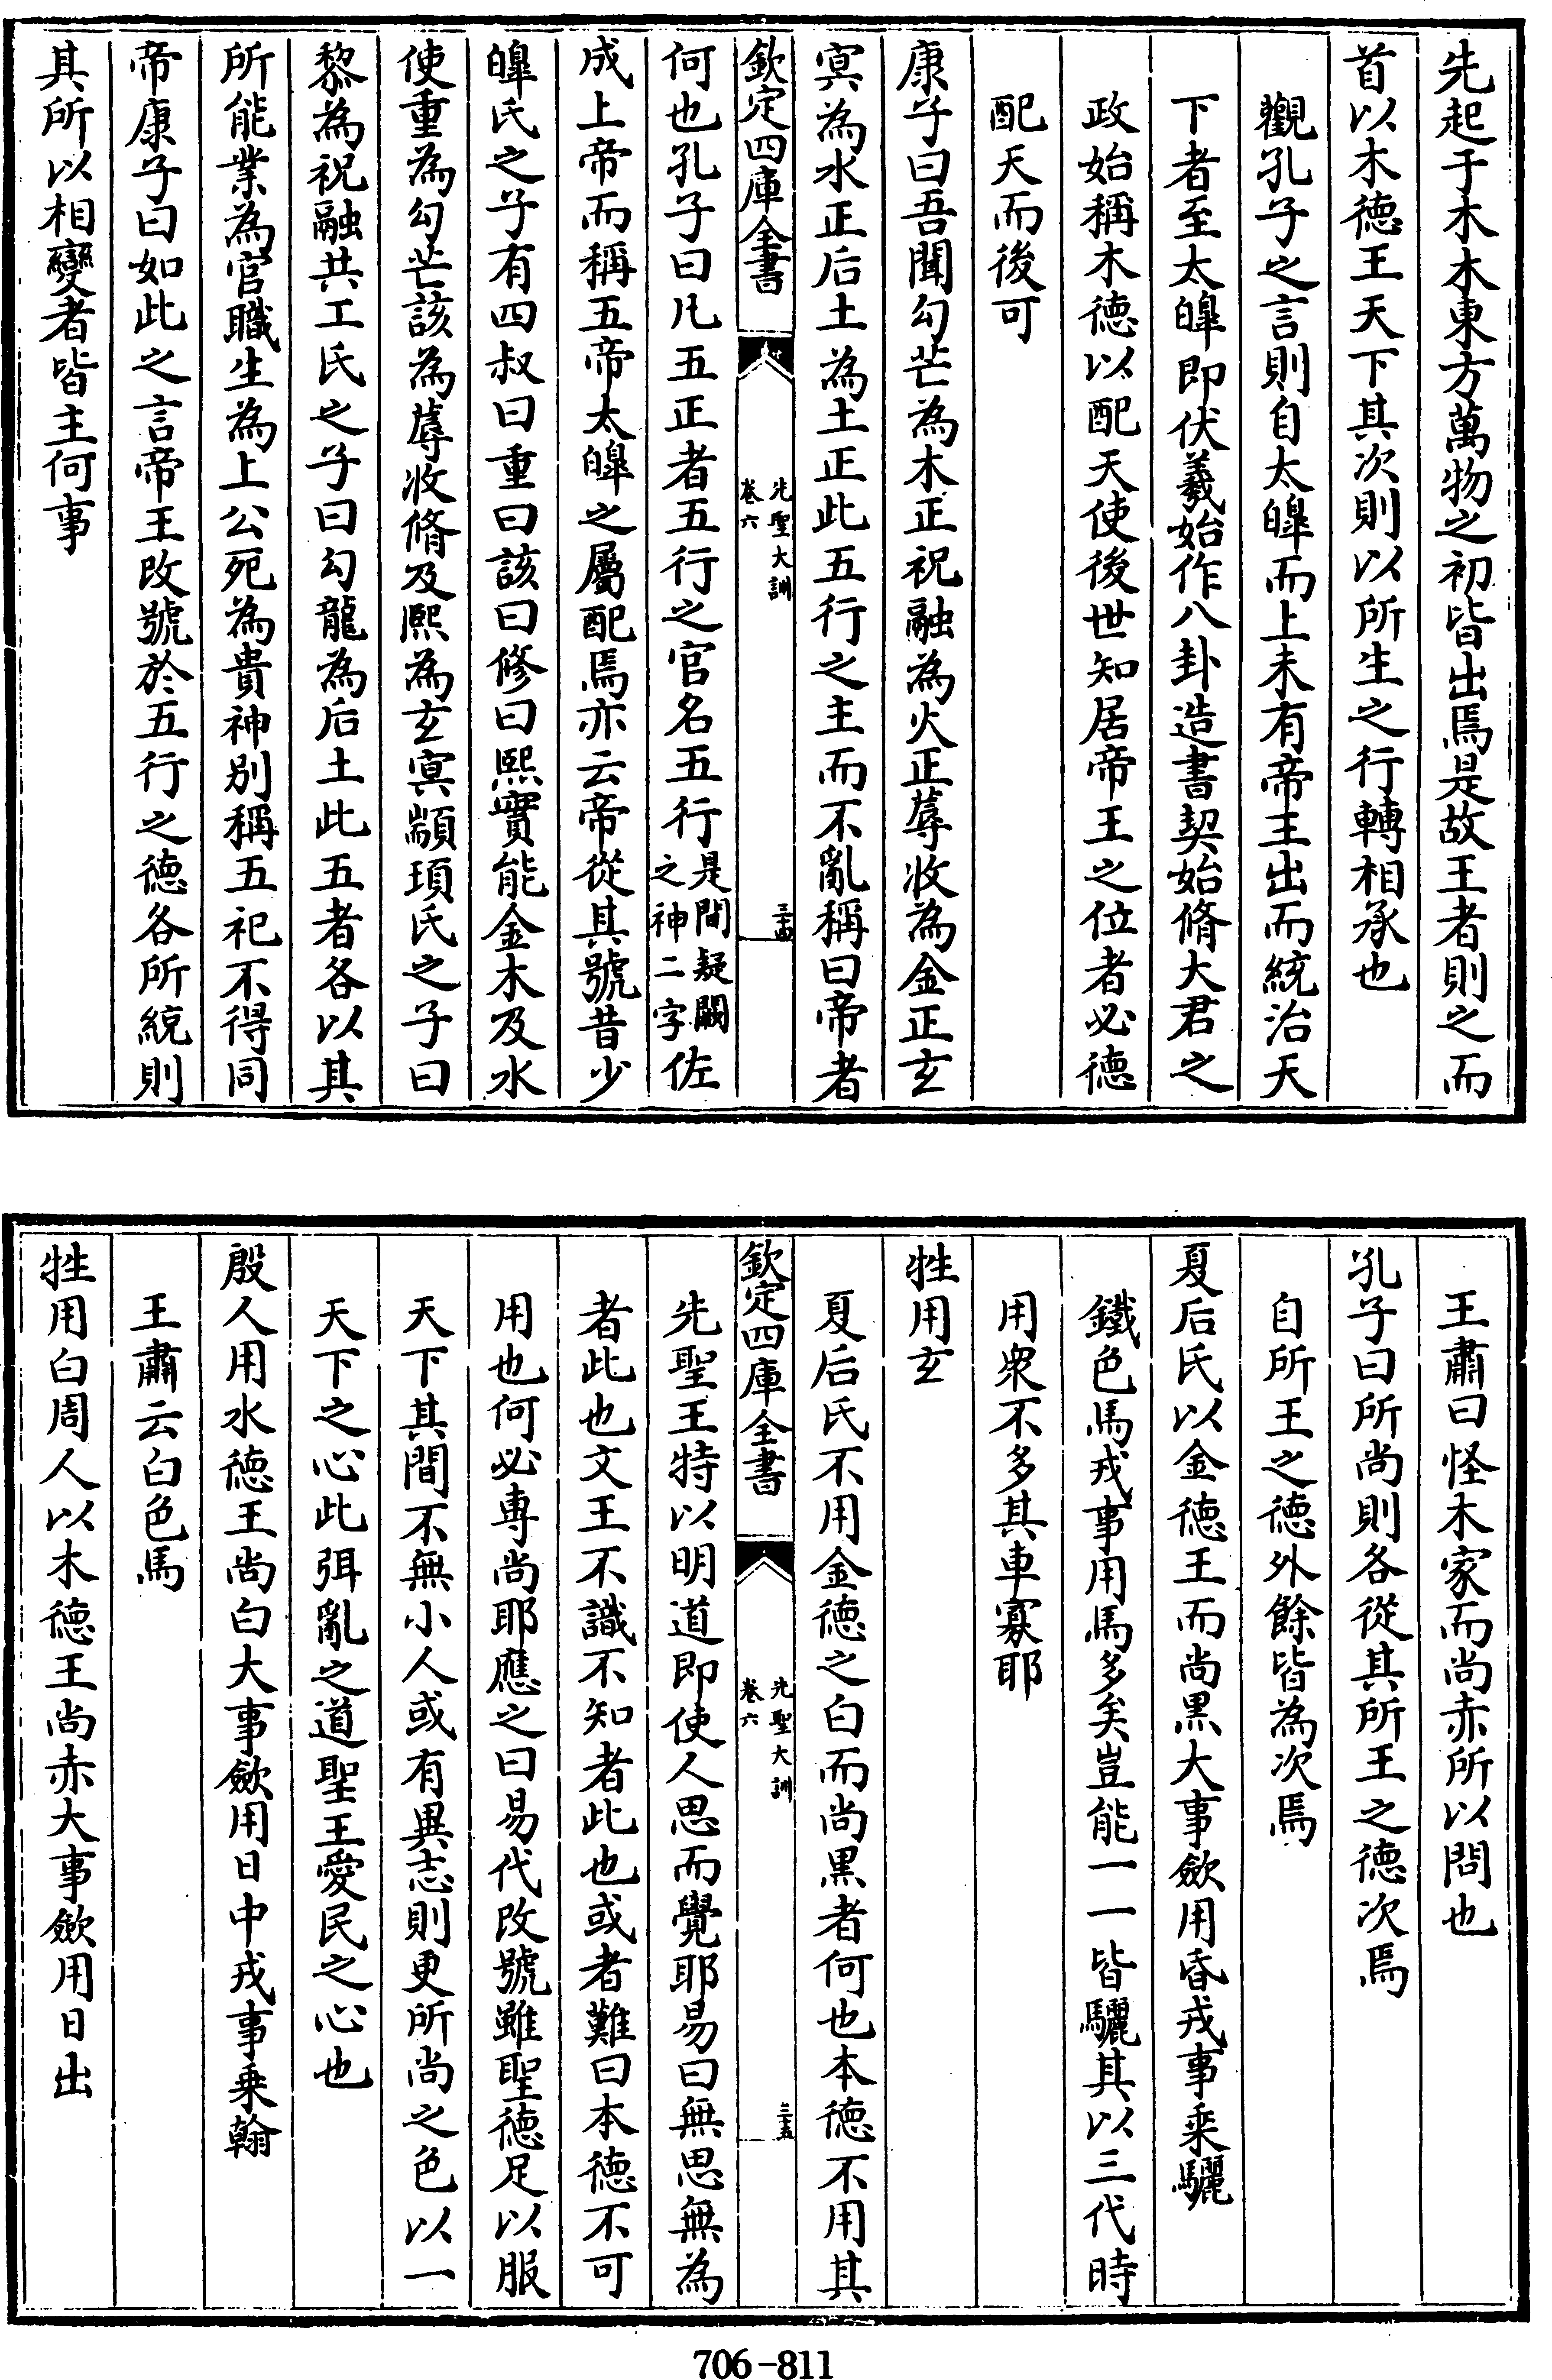 先起于木木東方萬物之初皆出焉是故王者則之而
首以木德王天下其次則以所生之行轉相承也
觀孔子之言則自太皥而上未有帝王出而統治天
下者至太皥即伏羲始作八卦造書契始脩大君之
政始稱木德以配天使後世知居帝王之位者必德
配天而後可
康子曰吾聞勾芒為木正祝融為火正蓐收為金正玄
冥為水正后土為土正此五行之主而不亂稱曰帝者
欽定四庫全書
先聖大訓
卷六
三十四
何也孔子曰凡五正者五行之官名五行是間疑闕之神二字佐
成上帝而稱五帝太皥之屬配焉亦云帝從其號昔少
皥氏之子有四叔曰重曰該曰修曰熙實能金木及水
使重為勾芒該為蓐收脩及熙為玄冥顓頊氏之子曰
黎為祝融共工氏之子曰勾龍為后土此五者各以其
所能業為官職生為上公死為貴神別稱五祀不得同
帝康子曰如此之言帝王改號於五行之德各所統則
其所以相變者皆主何事
王肅曰怪木家而尚赤所以問也
孔子曰所尚則各從其所王之德次焉
自所王之德外餘皆為次焉
夏后氏以金德王而尚黑大事歛用昏戎事乘驪
鐵色馬戎事用馬多矣豈能一一皆驪其以三代時
用衆不多其車寡耶
牲用玄
夏后氏不用金德之白而尚黑者何也本德不用其
欽定四庫全書
先聖大訓
卷六
三十五
先聖王特以明道即使人思而覺耶易曰無思無為
者此也文王不識不知者此也或者難曰本德不可
用也何必専尚耶應之曰易代改號雖聖德足以服
天下其間不無小人或有異志則更所尚之色以一
天下之心此弭亂之道聖王愛民之心也
殷人用水德王尚白大事歛用日中戎事乘翰
王肅云白色馬
牲用白周人以木德王尚赤大事歛用日出
706-811